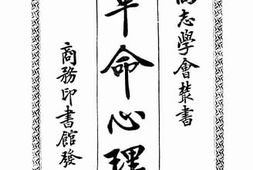 尚志學會叢書
革命心理
商務印書館發